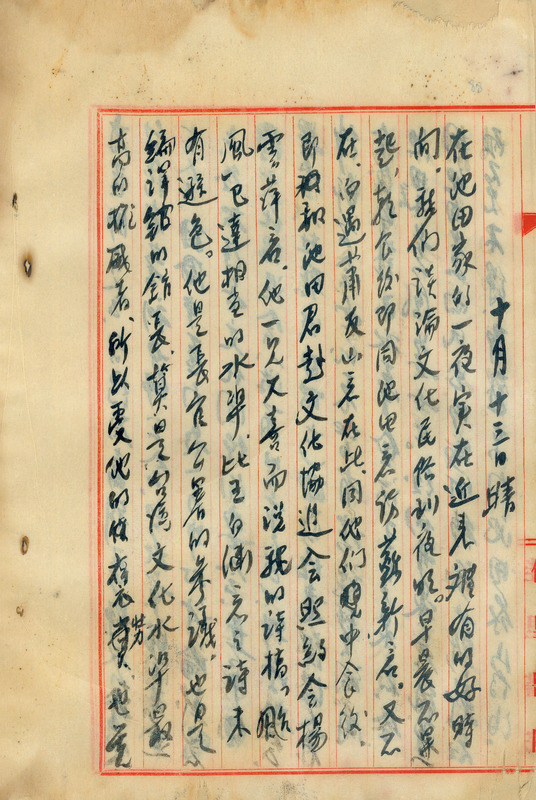 十月十三日 晴
在池田家的一夜実在近来難有的好時
間，我們談論文化民俗到夜明。早晨不早
起，朝食後即同池田君訪蘇新君。又不
在，而遇蕭友山君在此，同他們中食後，
即被和池田君赴文化協進会照約会楊
雲萍君，他一見大喜而說我的詩，
風已達相当的水準，比王白淵君之詩未
有遜色。他是長官公署的参議，也是
編譯館的館長，算是台湾文化水準最
高的権威者，所以受他的，也